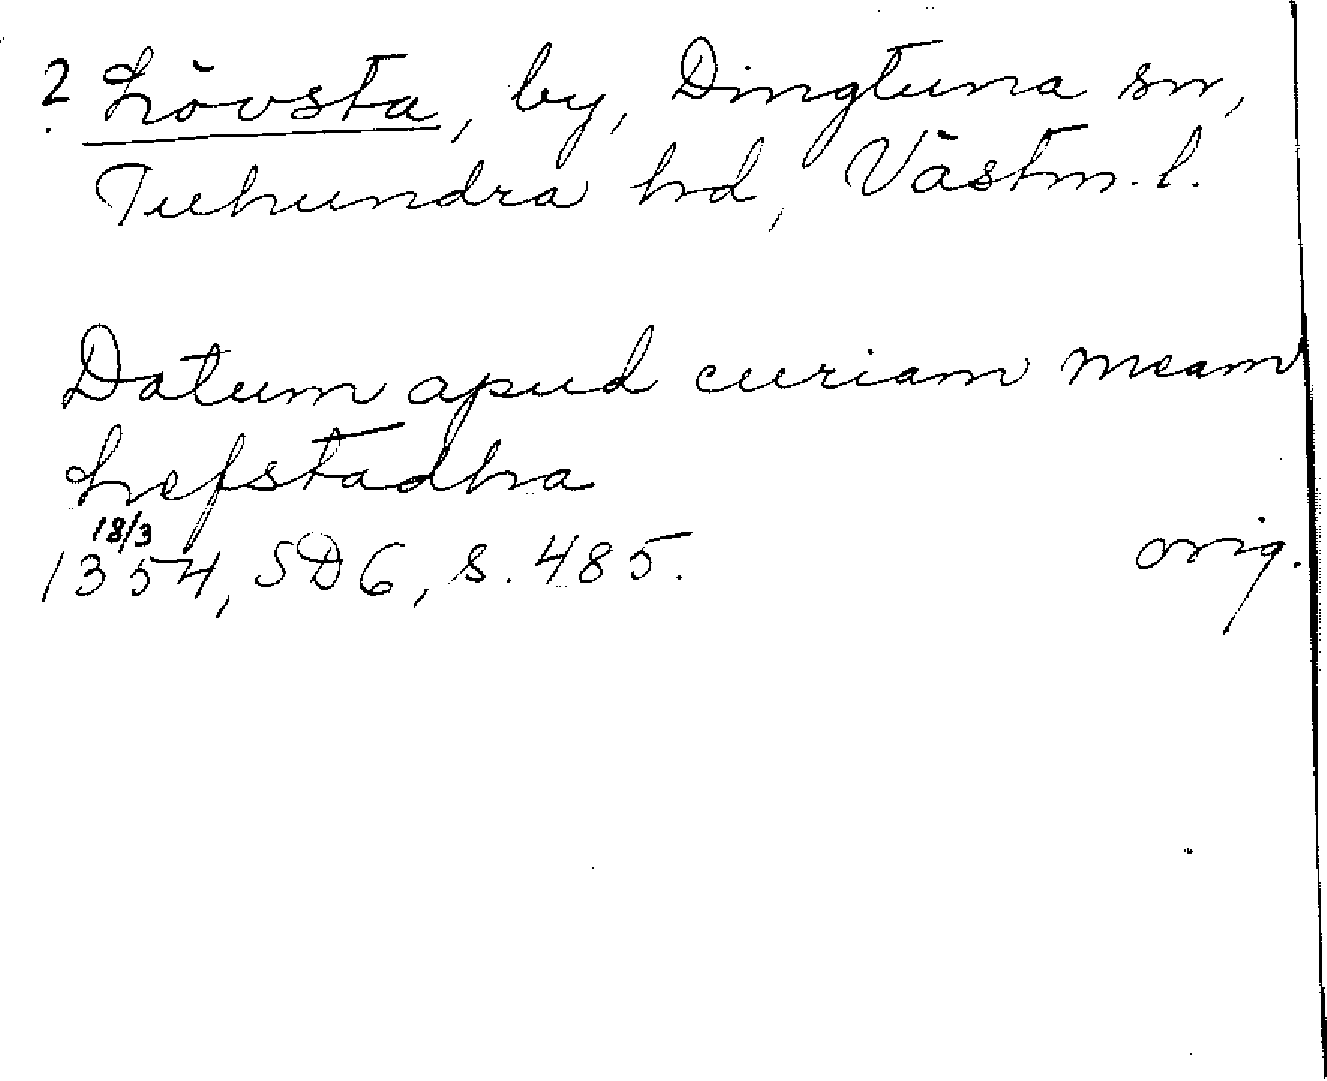 ? Lövsta, by, Dingtuna sn,
Tuhundra hd, Västm. l.
Datum apud curiam meam
Lefstadha
18/3
1354, SD 6, s. 485. orig.